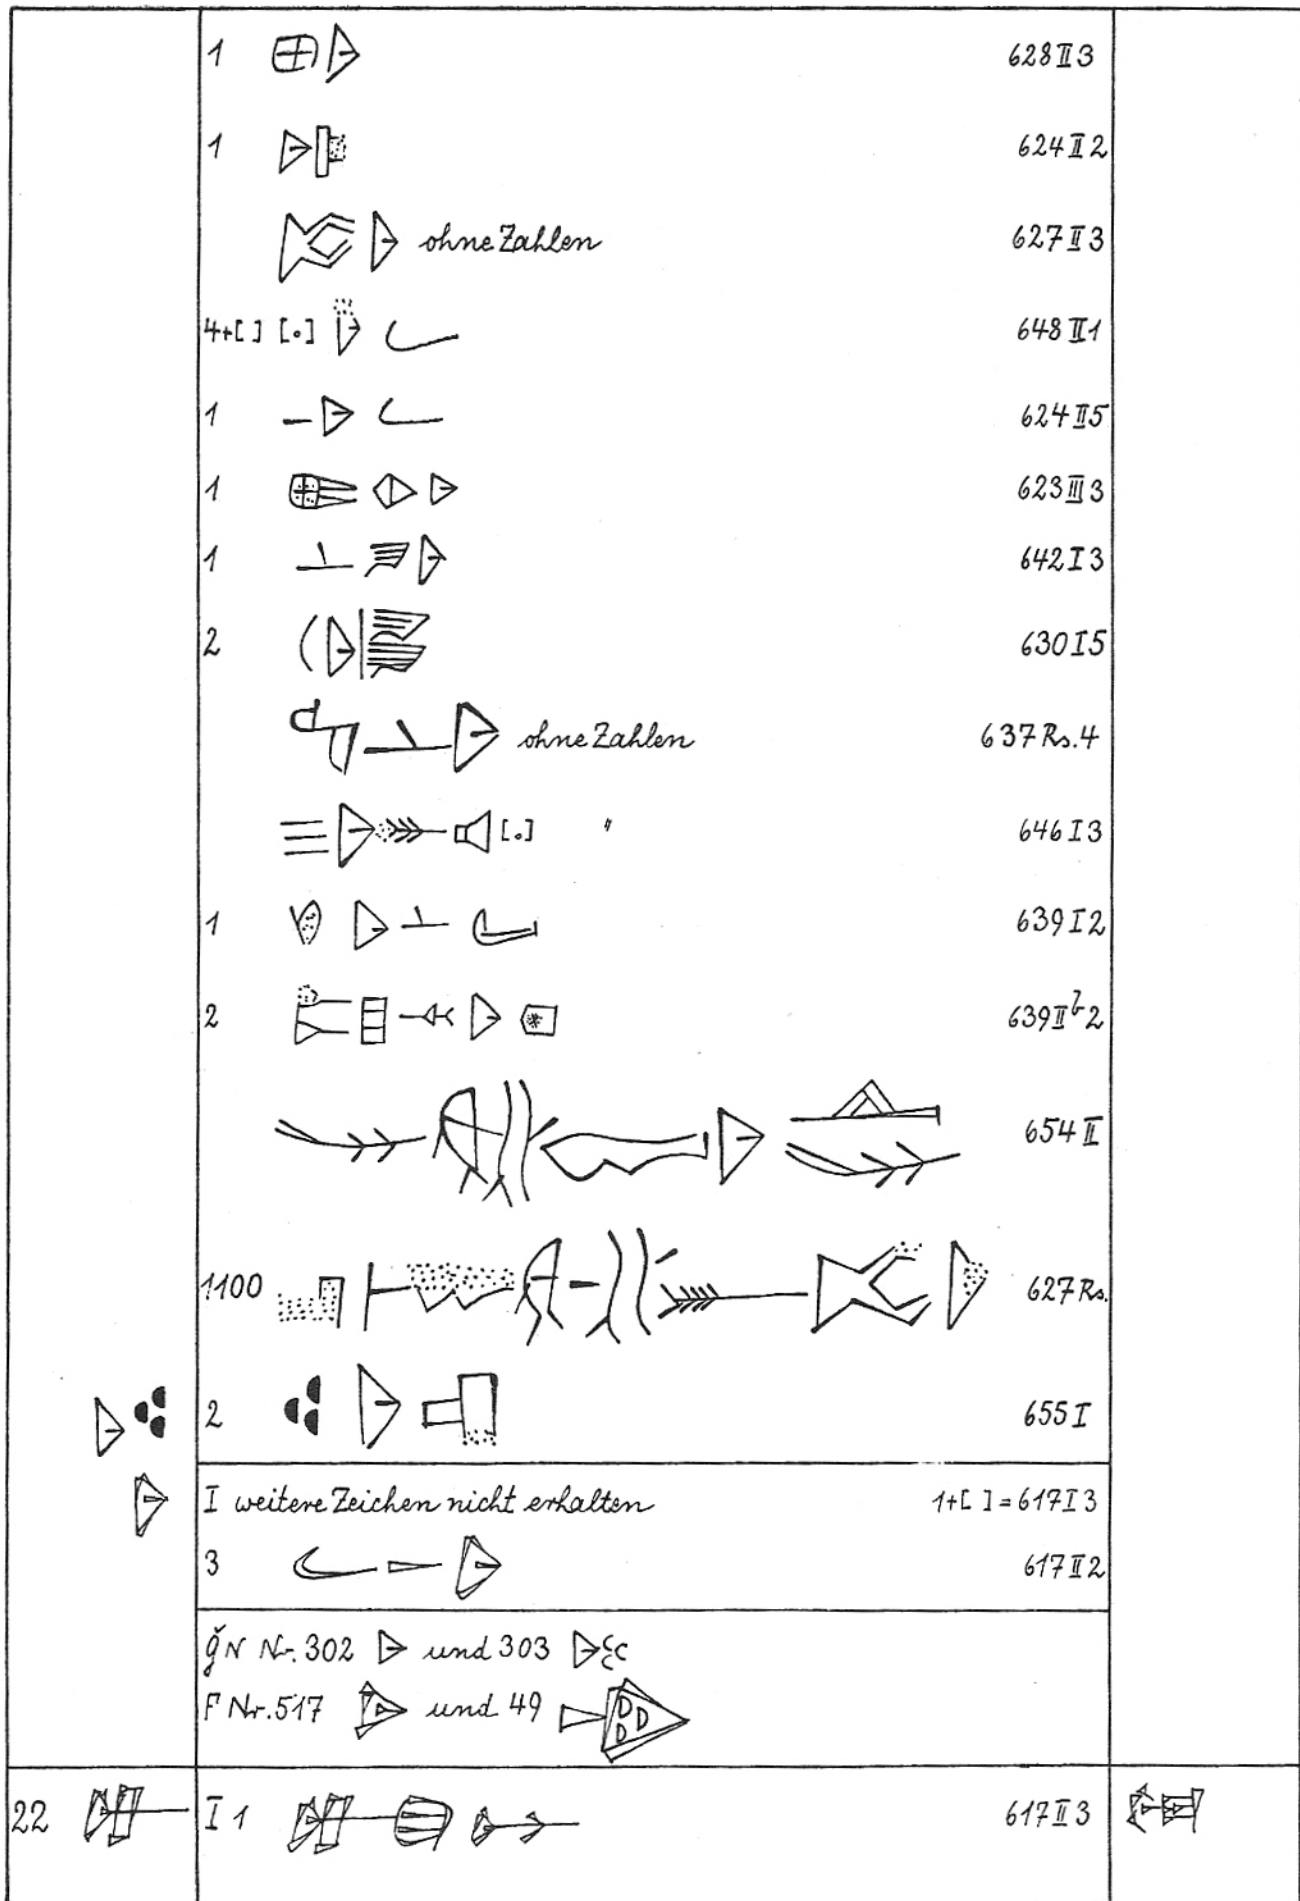 1 628 II 3
1 624 II 2
ohne Zahlen 627 II 3
4+[ ] [.] 648 II 1
1 624 II 5
1 623 III 3
1 642 I 3
2 630 I 5
ohne Zahlen 637 Rs. 4
[.] " 646 I 3
1 639 I 2
2 639 II 2
654 II
1100 627 Rs.
2 655 I
I weitere Zeichen nicht erhalten 1+[ ] = 617 I 3
3 617 II 2
ǧN Nr. 302 und 303
F Nr. 517 und 49
22 I 1 617 II 3